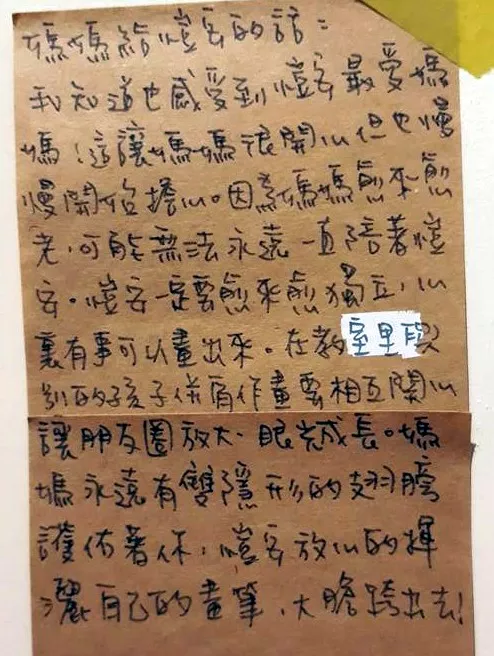 媽媽給愷安的話：
我知道也感受到愷安最愛媽
媽！這讓媽媽很開心但也慢
慢開始擔心。因為媽媽愈來愈
老，可能無法永遠一直陪著愷
安。愷安一定要愈來愈獨立，心
裏有事可以畫出來。在教室里跟
別的孩子併肩作畫要相互關心
讓朋友圈放大、眼光成長。媽
媽永遠有雙隱形的翅膀
護佑著你，愷安放心的揮
灑自己的畫筆，大膽跨出去！